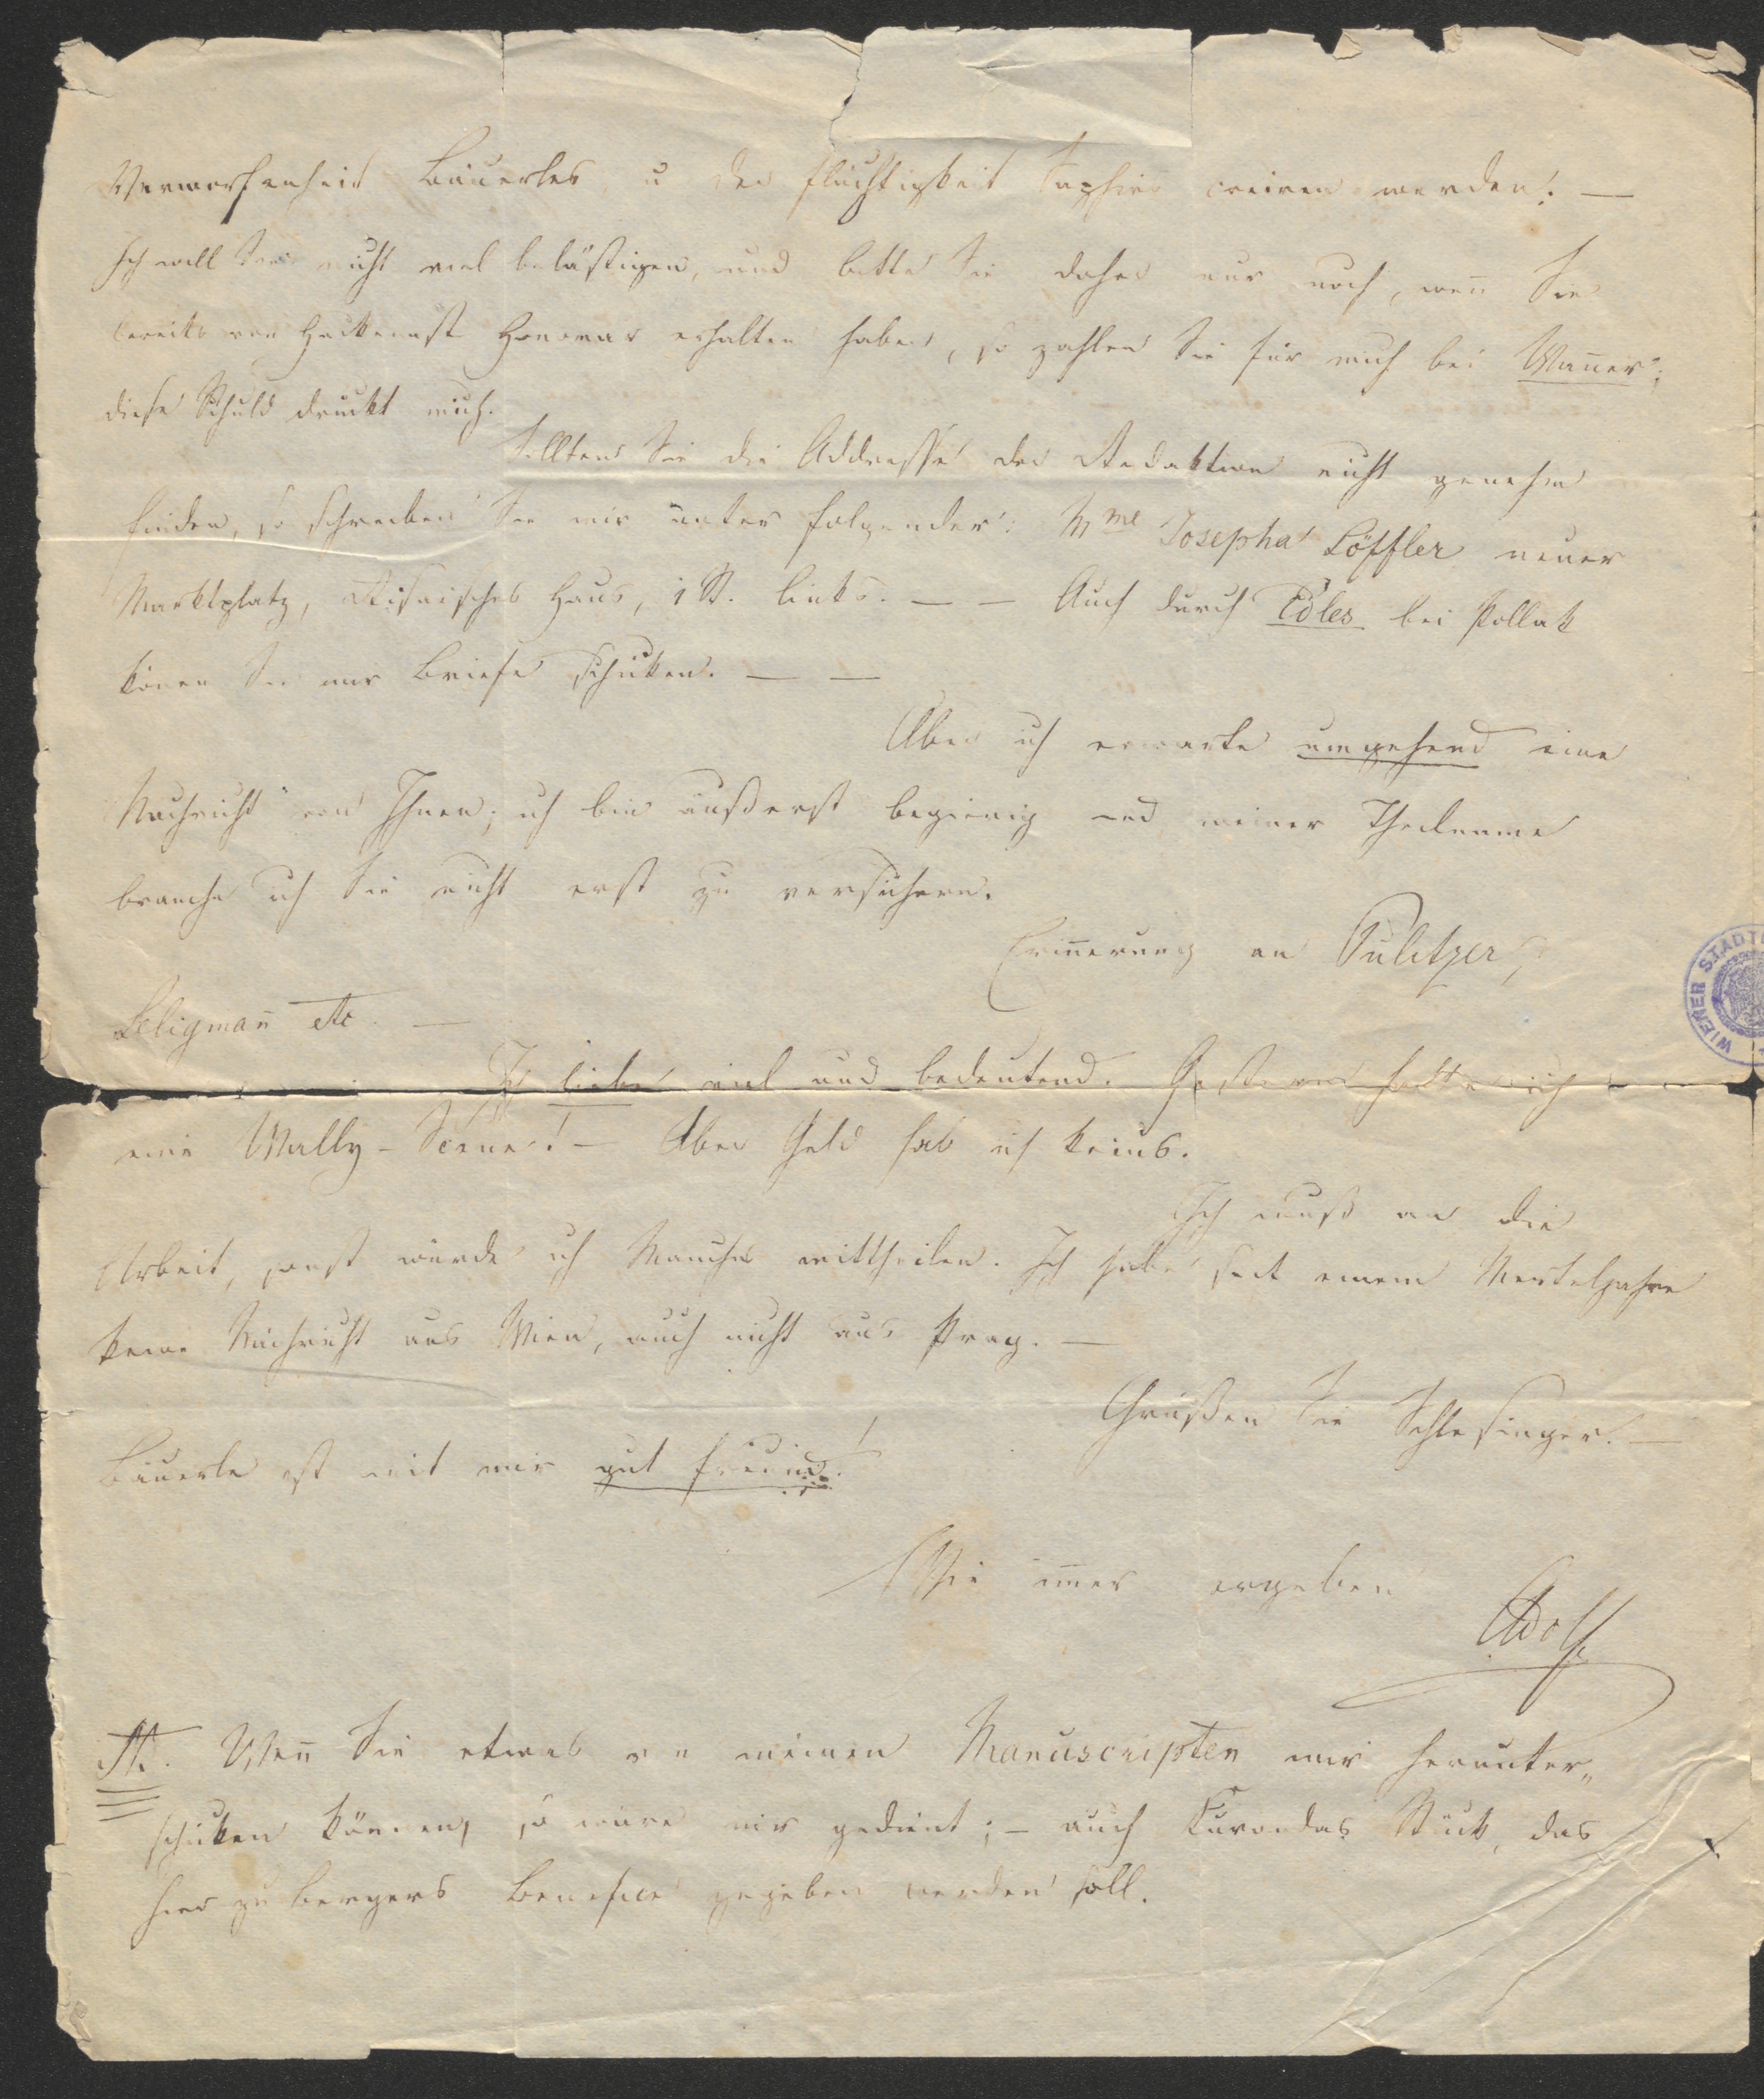 Verworfenheit Bäuerles, u der Fluchtigkeit Saphirs creiren werden! —
Ich will Sie nicht viel belästigen, und bitte Sie daher nur noch, wen̄ Sie
bereits von Heckenast Honorar erhalten haben, so zahlen Sie für mich bei Wan̄er;
diese Schuld druckt mich.
Sollten Sie die Addresse der Redaktion nicht genehm
finden, so schreiben Sie mir unter folgender: Mme Josepha Löffler neuer
Marktplatz, Haus, 1 St. links. — — Auch durch Edles bei Pollak
kön̄en Sie mir Briefe schicken. — —
Aber ich erwarte umgehend eine
Nachricht von Ihnen; ich bin äußerst begierig und meiner Theilname
brauche ich Sie nicht erst zu versichern.
Erin̄erung an Pulitzer,
Seligman̄ etc. —
Ich liebe viel und bedeutend. Gestern hatte ich
eine Wally-Scene! — Aber Geld hab ich keins.
Ich muß an die
Arbeit, sonst würde ich Manches mittheilen. Ich habe seit einem Vierteljahre
keine Nachricht aus Wien, auch nicht aus Prag. —
Grüßen Sie Schlesinger. —
Bäuerle ist mit mir gut Freund!
Wie im̄er ergeben
Adolf
Wen̄ Sie etwas von meinen Manuscripten mir herunter„
schicken können, so wäre mir gedient; – auch Kurandas Stück, das
hier zu Bergers Benefice gegeben werden soll.
WIENER STADT